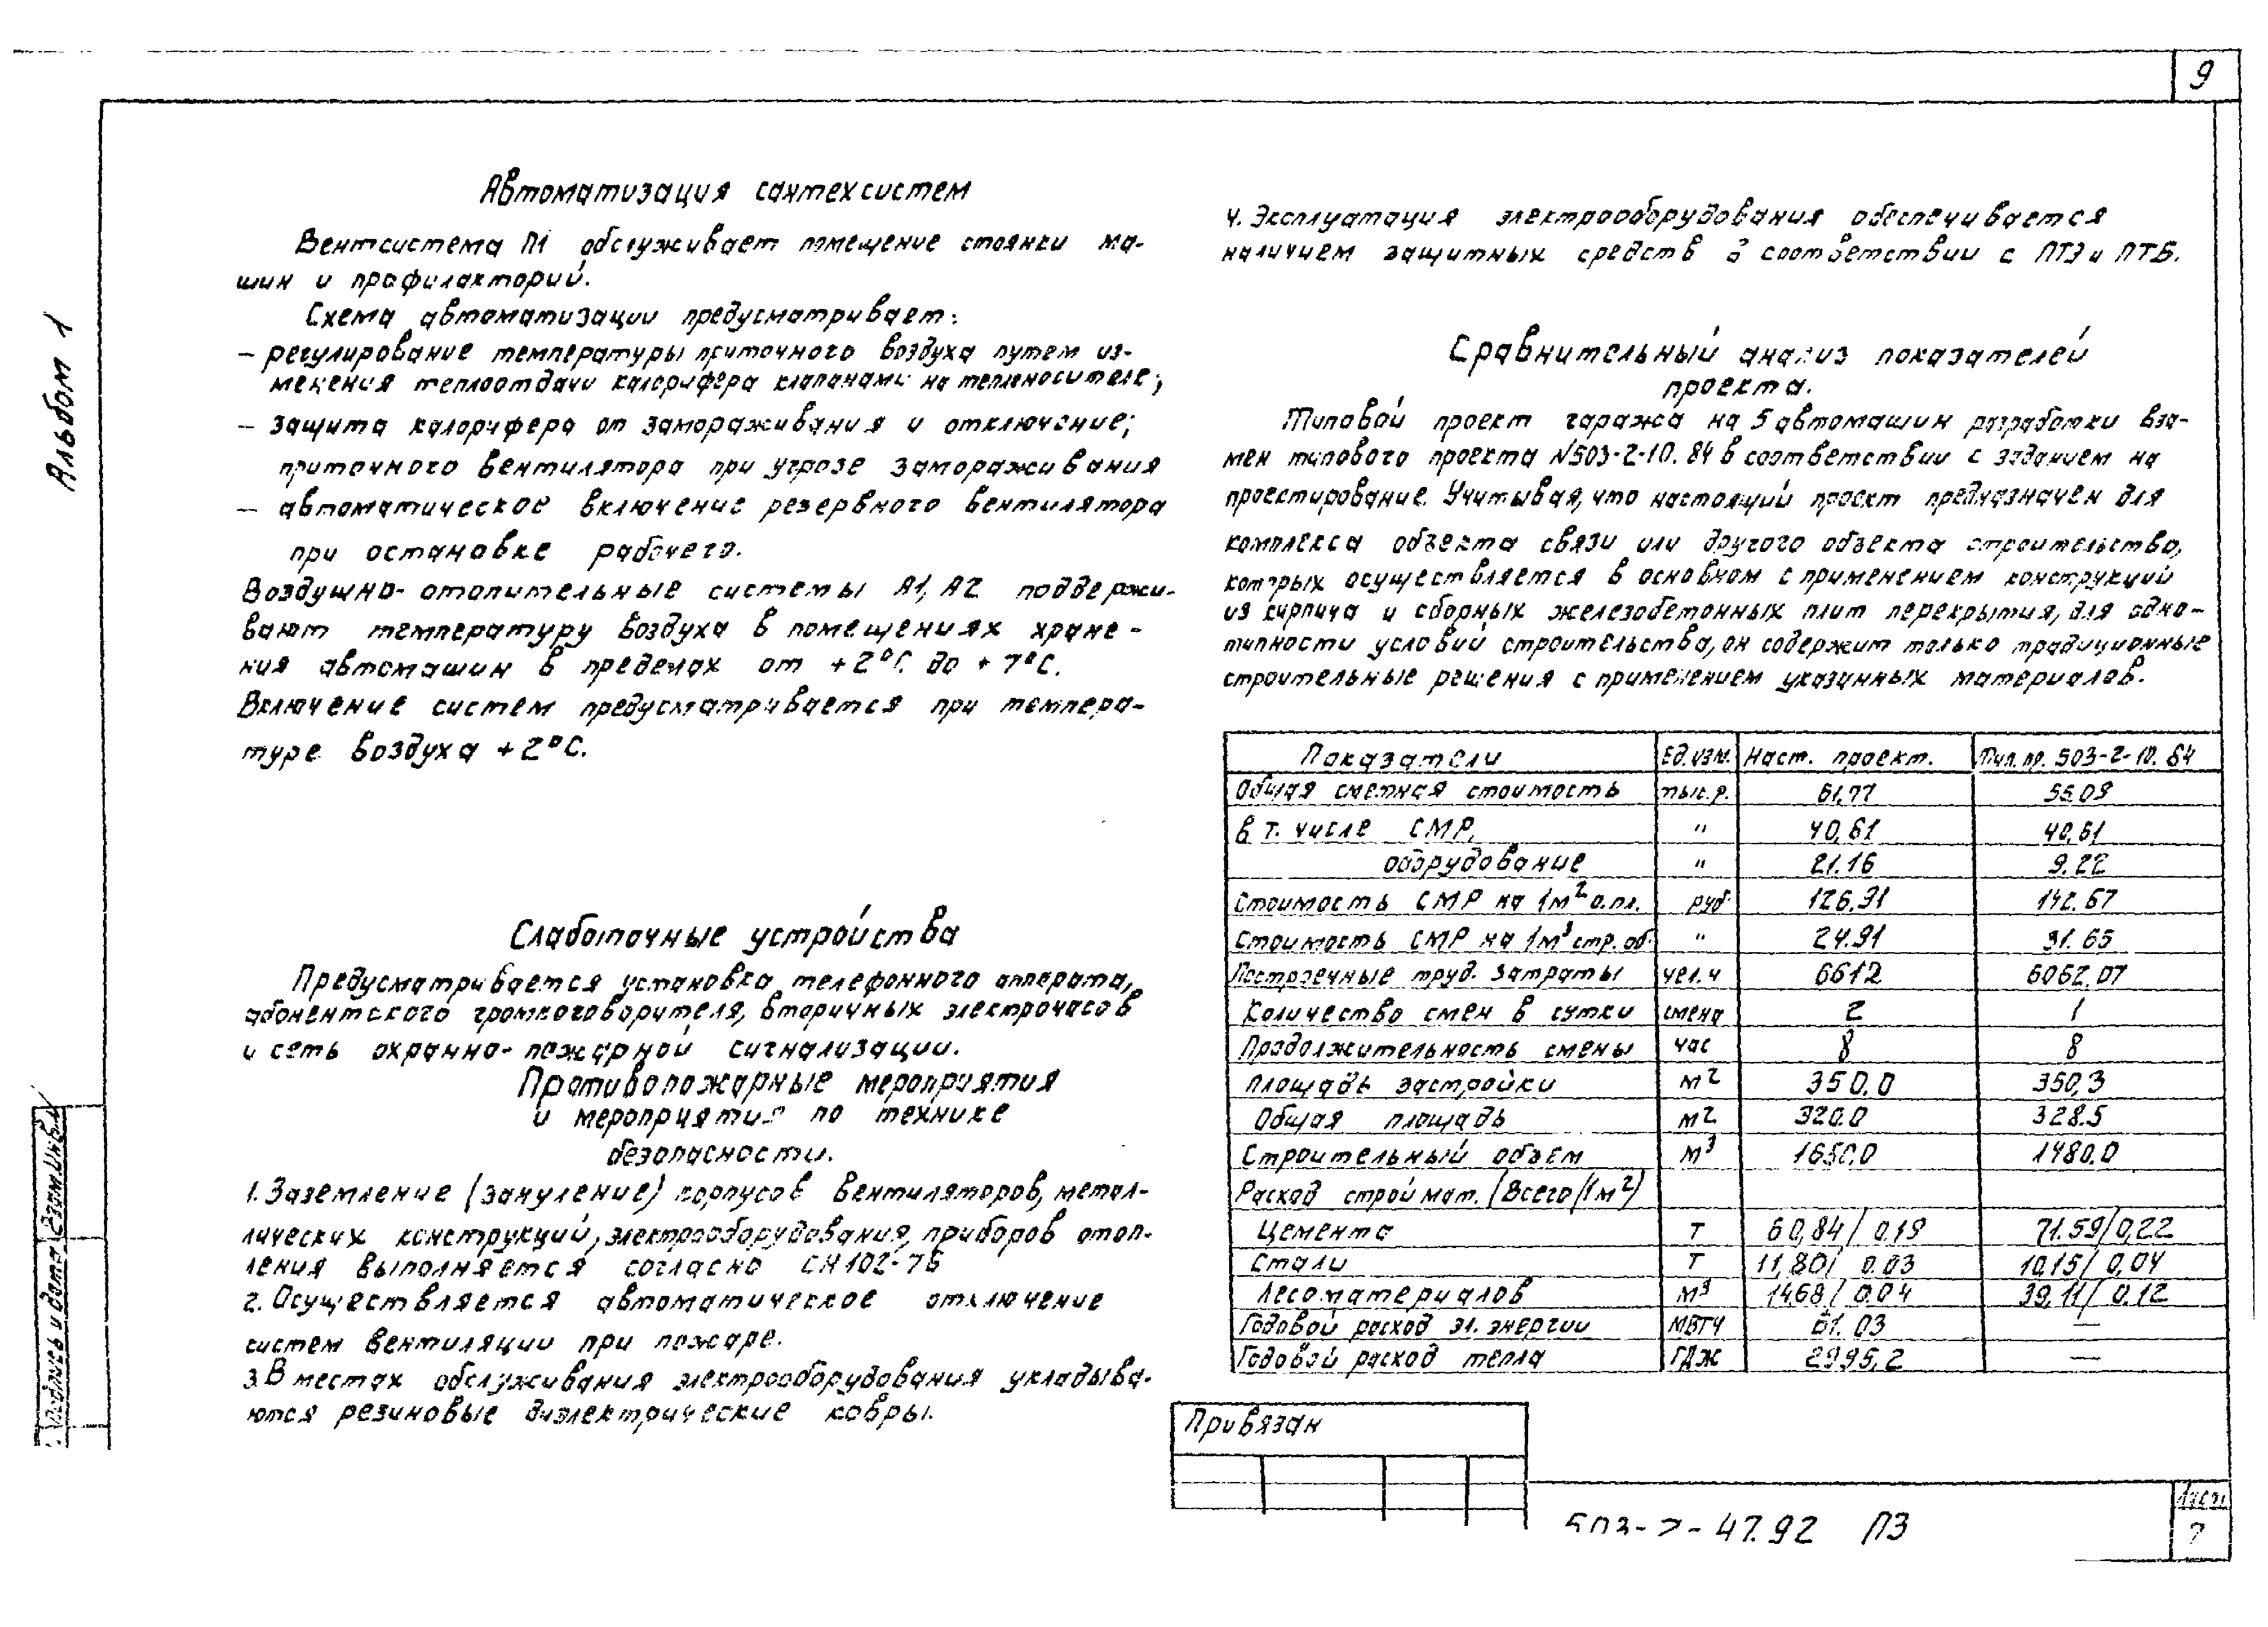 9
Альбом 1
Автоматизация сантехсистем
Вентсистема П1 обслуживает помещение стоянки ма-
шин и профилакторий.
Схема автоматизации предусматривает:
– регулирование температуры приточного воздуха путем из-
менения теплоотдачи калорифера клапанами на теплоносителе;
– защита калорифера от замораживания и отключение;
приточного вентилятора при угрозе замораживания
– автоматическое включение резервного вентилятора
при остановке рабочего.
Воздушно-отопительные системы А1, А2 поддержи-
вают температуру воздуха в помещениях хране-
ния автомашин в пределах от +2°С. до +7°С.
Включение систем предусматривается при темпера-
туре воздуха +2°С.
Слаботочные устройства
Предусматривается установка телефонного аппарата,
абонентского громкоговорителя, вторичных электрочасов
и сеть охранно-пожарной сигнализации.
Противопожарные мероприятия
и мероприятия по технике
безопасности.
1. Заземление (зануление) корпусов вентиляторов, метал-
лических конструкций, электрооборудования, приборов отоп-
ления выполняется согласно СН 102-76
2. Осуществляется автоматическое отключение
систем вентиляции при пожаре.
3. В местах обслуживания электрооборудования укладыва-
ются резиновые диэлектрические ковры.
4. Эксплуатация электрооборудования обеспечивается
наличием защитных средств в соответствии с ПТЭ и ПТБ.
Сравнительный анализ показателей
проекта.
Типовой проект гаража на 5 автомашин разработки вза-
мен типового проекта N503-2-10.84 в соответствии с заданием на
проектирование. Учитывая, что настоящий проект предназначен для
комплекса объекта связи или другого объекта строительство,
которых осуществляется в основном с применением конструкций
из кирпича и сборных железобетонных плит перекрытия, для одно-
типности условий строительства, он содержит только традиционные
строительные решения с применением указанных материалов.
Показатели Ед.изм. Наст. проект. Тип.пр. 503-2-10.84
Общая сметная стоимость тыс.р. 61,77 55.09
в т. числе СМР, " 40,61 40,61
оборудование " 21.16 9.22
Стоимость СМР на 1м² о.пл. руб. 126.91 142.67
Стоимость СМР на 1м³ стр. об. " 24.91 31.65
Построечные труд. затраты чел.ч 6612 6062,07
Количество смен в сутки смена 2 1
Продолжительность смены час 8 8
Площадь застройки м² 350.0 350,3
Общая площадь м² 320.0 328.5
Строительный объем м³ 1630,0 1480.0
Расход строймат. (Всего/1м²)
Цемента т 60,84/ 0.19 71.59/0,22
Стали т 11,80/ 0.03 10,15/ 0,04
Лесоматериалов м³ 14.68/ 0.04 39,11/ 0.12
Годовой расход эл. энергии МВтч 61.03 —
Годовой расход тепла ГДж 2995,2 —
Привязан
503-2-47.92 ПЗ
Лист
7
Подпись и дата Взам.инв.